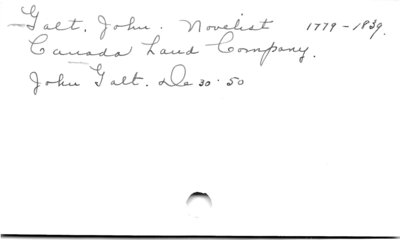 Galt, John. Novelist 1779-1839.
Canada Land Company.
John Galt. De 30.50